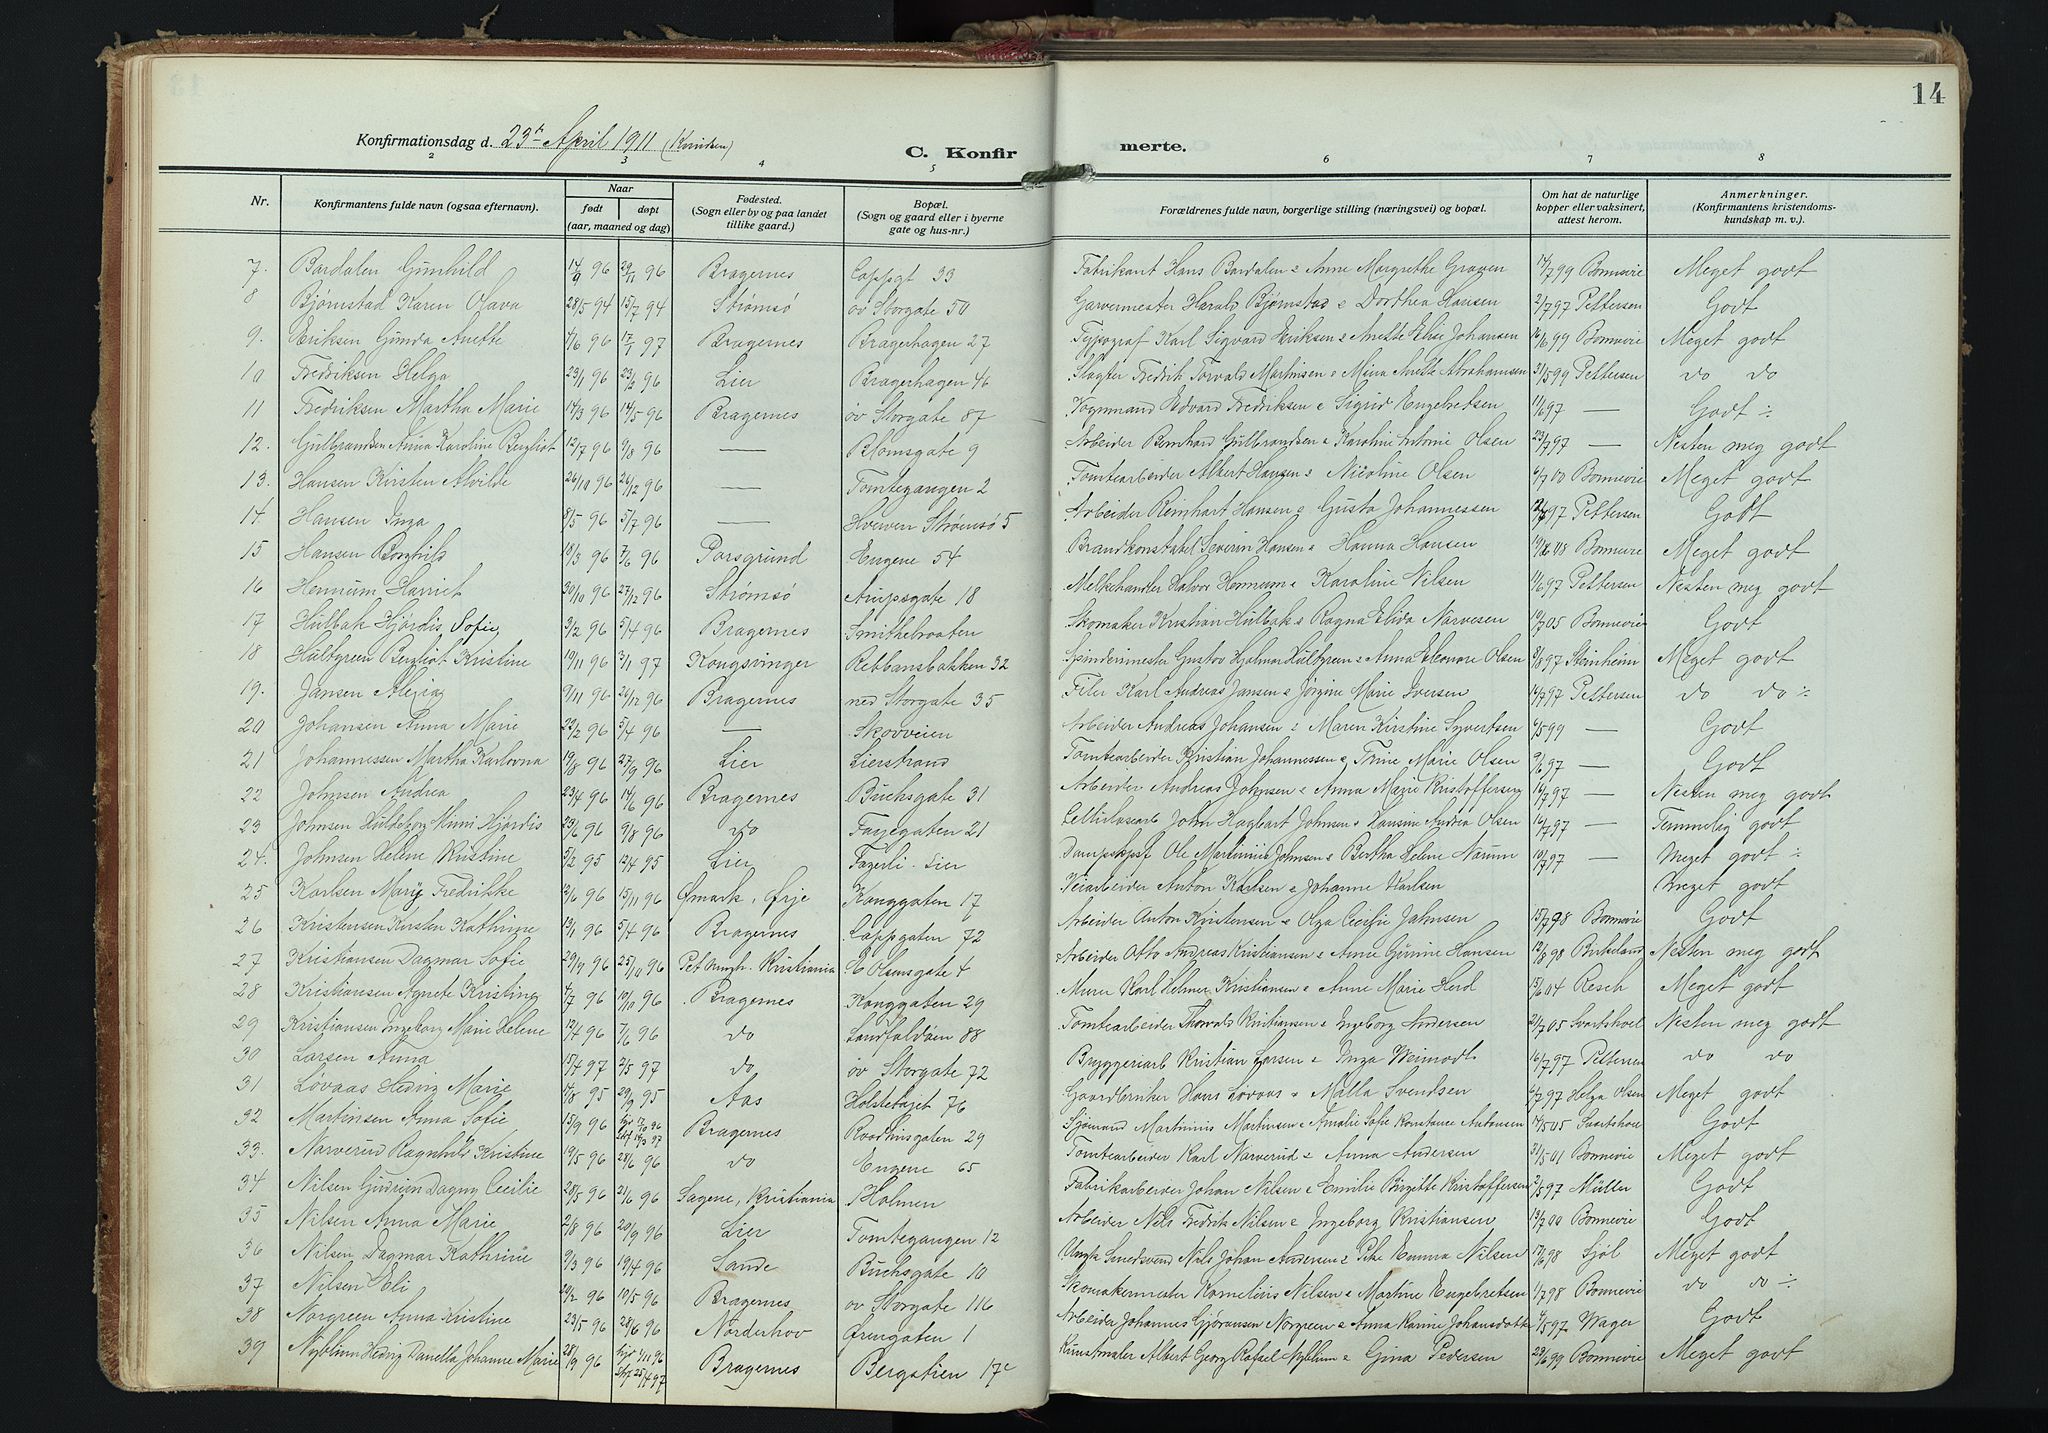 14
Konfirmationsdag d. 23de April 1911 (Knudsen)
C. Konfirmerte.
2 3 4 5 6 7 8
Nr. Konfirmantens fulde navn (ogsaa efternavn). Naar født døpt (aar, maaned og dag) Fødested. (Sogn eller by og paa landet tillike gaard.) Bopæl. (Sogn og gaard eller i byerne gate og hus-nr.) Forældrenes fulde navn, borgerlige stilling (næringsvei) og bopæl. Om hat de naturlige kopper eller vaksinert, attest herom. Anmerkninger. (Konfirmantens kristendomskundskap m. v.).
7. Bardalen Gunhild 14/9 96 29/11 96 Bragernes Cappgt 33 Fabrikant Hans Bardalen & Anne Margrethe Graven 14/7 99 Bonnevie Meget godt
8 Bjørnstad Karen Olava 28/5 94 15/7 94 Strømsø øv Storgate 50 Garvermester Harald Bjørnstad & Dorthea Hansen 2/7 97 Pettersen Godt
9. Eriksen Gunda Anette 4/6 96 17/1 97 Bragernes Bragerhagen 27 Typograf Karl Sigvard Eriksen & Anette Elise Johansen 16/6 99 Bonnevie Meget godt
10 Fredriksen Helga 23/1 96 23/2 96 Lier Bragerhagen 46 Slagter Fredrik Torvald Martinsen & Mina Anette Abrahamsen 31/5 99 Pettersen do do
11 Fredriksen Martha Marie 14/3 96 14/5 96 Bragernes øv Storgate 87 Vognmand Edvard Fredriksen & Sigrid Engebretsen 11/6 97 — Godt ÷
12. Gulbrandsen Anna Karoline Bergliot 12/7 96 9/8 96 — Blomsgate 9 Arbeider Bernhard Gulbrandsen & Karoline Antonie Olsen 23/7 97 — Nesten meg godt
13. Hansen Kirsten Alvilde 26/10 96 26/12 96 — Tomtegangen 2 Tomtearbeider Albert Hansen & Nicoline Olsen 6/7 00 Bonnevie Meget godt
14 Hansen Inga 8/5 96 5/7 96 — Hverven Strømsø 5 Arbeider Reinhart Hansen & Gusta Johannessen 97 Pettersen Godt
15 Hansen Borghild 18/3 96 7/6 96 Porsgrund Engene 54 Brandkonstabel Severin Hansen & Hanna Hansen 08 Bonnevie Meget godt
16 Hennum Harriet 30/10 96 27/12 96 Strømsø Arupsgate 18 Melkehandler Halvor Hennum & Karoline Nilsen 11/6 97 Pettersen Nesten meg godt
17 Hulbak Hjørdis Sofie 3/2 96 5/4 96 Bragernes Smithebraaten Skomaker Kristian Hulbak & Ragna Elida Narvesen 10/7 05 Bonnevie Godt
18 Hultgreen Bergliot Kristine 19/11 96 3/1 97 Kongsvinger Rebbansbakken 32 Spinderimester Gustav Hjalmar Hultgreen & Anna Eleonore Olsen 3/8 97 Steinheim Meget godt
19. Jansen Alexia 9/11 96 26/12 96 Bragernes ned Storgate 35 Filer Karl Andreas Jansen & Jørgine Marie Iversen 14/7 97 Pettersen do do ÷
20 Johansen Anna Marie 22/2 96 5/4 96 — Skovveien Arbeider Andreas Johansen & Maren Kirstine Syvertsen 4/5 99 — Godt
21 Johannessen Martha Karlovna 19/8 96 27/9 96 Lier Lierstrand Tomtearbeider Kristian Johannessen & Trine Marie Olsen 9/6 97 — Godt
22 Johnsen Andrea 23/4 96 14/6 96 Bragernes Buchsgate 31 Arbeider Andreas Johnsen & Anna Marie Kristoffersen 16/7 97 — Nesten meg godt
23 Johnsen Huldeborg Mimi Hjørdis 23/6 96 9/8 96 do Fayegaten 21 Celluloscarb John Hagbart Johnsen & Hansine Andrea Olsen 16/7 97 — Temmelig godt
24. Johnsen Helene Kristine 5/2 95 12/4 95 Lier Fagerli. Lier Dampskpsf Ole Martinius Johnsen & Bertha Helene Naum 10/7 97 — Meget godt ÷
25 Karlsen Mary Fredrikke 12/6 96 15/11 96 Ømark, Ørje Konggaten 17 Veiarbeider Anton Karlsen & Johanne Karlsen Meget godt
26 Kristensen Kirsten Kathrine 13/1 96 5/4 96 Bragernes Cappgaten 72 Arbeider Anton Kristensen & Olga Cecilie Jahnsen 15/7 98 Bonnevie Godt
27 Kristiansen Dagmar Sofie 29/9 96 25/10 96 Pet mngh. Kristiania E Olsensgate 4 Arbeider Otto Andreas Kristiansen & Anne Gunine Hansen 12/8 98 Birkeland Nesten meg godt
28 Kristiansen Agnete Kristine 4/7 96 10/10 96 Bragernes Konggaten 29 Murer Karl Helmer Kristiansen & Anne Marie Herd 15/6 04 Resch Meget godt
29 Kristiansen Ingeborg Marie Helene 12/4 96 7/6 96 do Landfaldøen 88 Tomtearbeider Thorvald Kristiansen & Ingeborg Andersen 21/7 05 Svartshoel Nesten meg godt
30 Larsen Anna 15/4 97 2/5 97 do øv Storgate 72 Bryggeriarb Kristian Larsen & Inga Weimodt 16/7 97 Pettersen do do
31 Løvaas Hedvig Marie 14/8 95 29/9 95 Aas Holstetajet 76 Gaardbruker Hans Løvaas & Malla Svendsen 6/7 97 Helga Olsen Meget godt
32 Martinsen Anna Sofie 15/9 96 96 97 Bragernes Rvortnisgaten 29 Sjømand Martinius Martinsen & Amalie Sofie Konstance Antonsen 14/5 05 Svartshoel Godt
33. Narverud Ragnhild Kristine 19/5 96 28/6 96 do Engene 65 Tomtearbeider Karl Narverud & Anna Andersen 31/5 01 Bonnevie Meget godt
34 Nilsen Gudrun Dagny Cecilie 28/5 96 21/6 96 Sagene, Kristiania Holmen Fabrikarbeider Johan Nilsen & Emilie Birgitte Kristoffersen 2/5 97 Müller Godt
35 Nilsen Anna Marie 2/8 96 20/9 96 Lier Tomtegangen 12 Arbeider Nils Fredrik Nilsen & Ingeborg Kristiansen 13/7 00 Bonnevie Godt
36 Nilsen Dagmar Kathrine 9/3 96 19/4 96 Sande Buchsgate 10 Ungk Smedsvend Nils Johan Andersen & Pike Emma Nilsen 17/6 98 Sjöl Meget godt
37 Nilsen Eli 20/2 96 10/5 96 Bragernes øv Storgate 116 Skomakermester Kornelius Nilsen & Martine Engebretsen 14/7 98 Bonnevie do do ÷
38 Norgreen Anna Kristine 23/5 96 28/6 96 Norderhov Ørengaten 1 Arbeider Johannes Gjøransen Norgreen & Anna Karine Johansdotter 4/5 97 Wager Godt
39 Nyblin Hedvig Danella Johanne Marie 28/9 96 hjd 1/11 96 25/4 97 Bragernes Bergstien 17c Kunstmaler Albert Georg Rafael Nyblin & Gina Pedersen 23/6 99 Bonnevie Meget godt